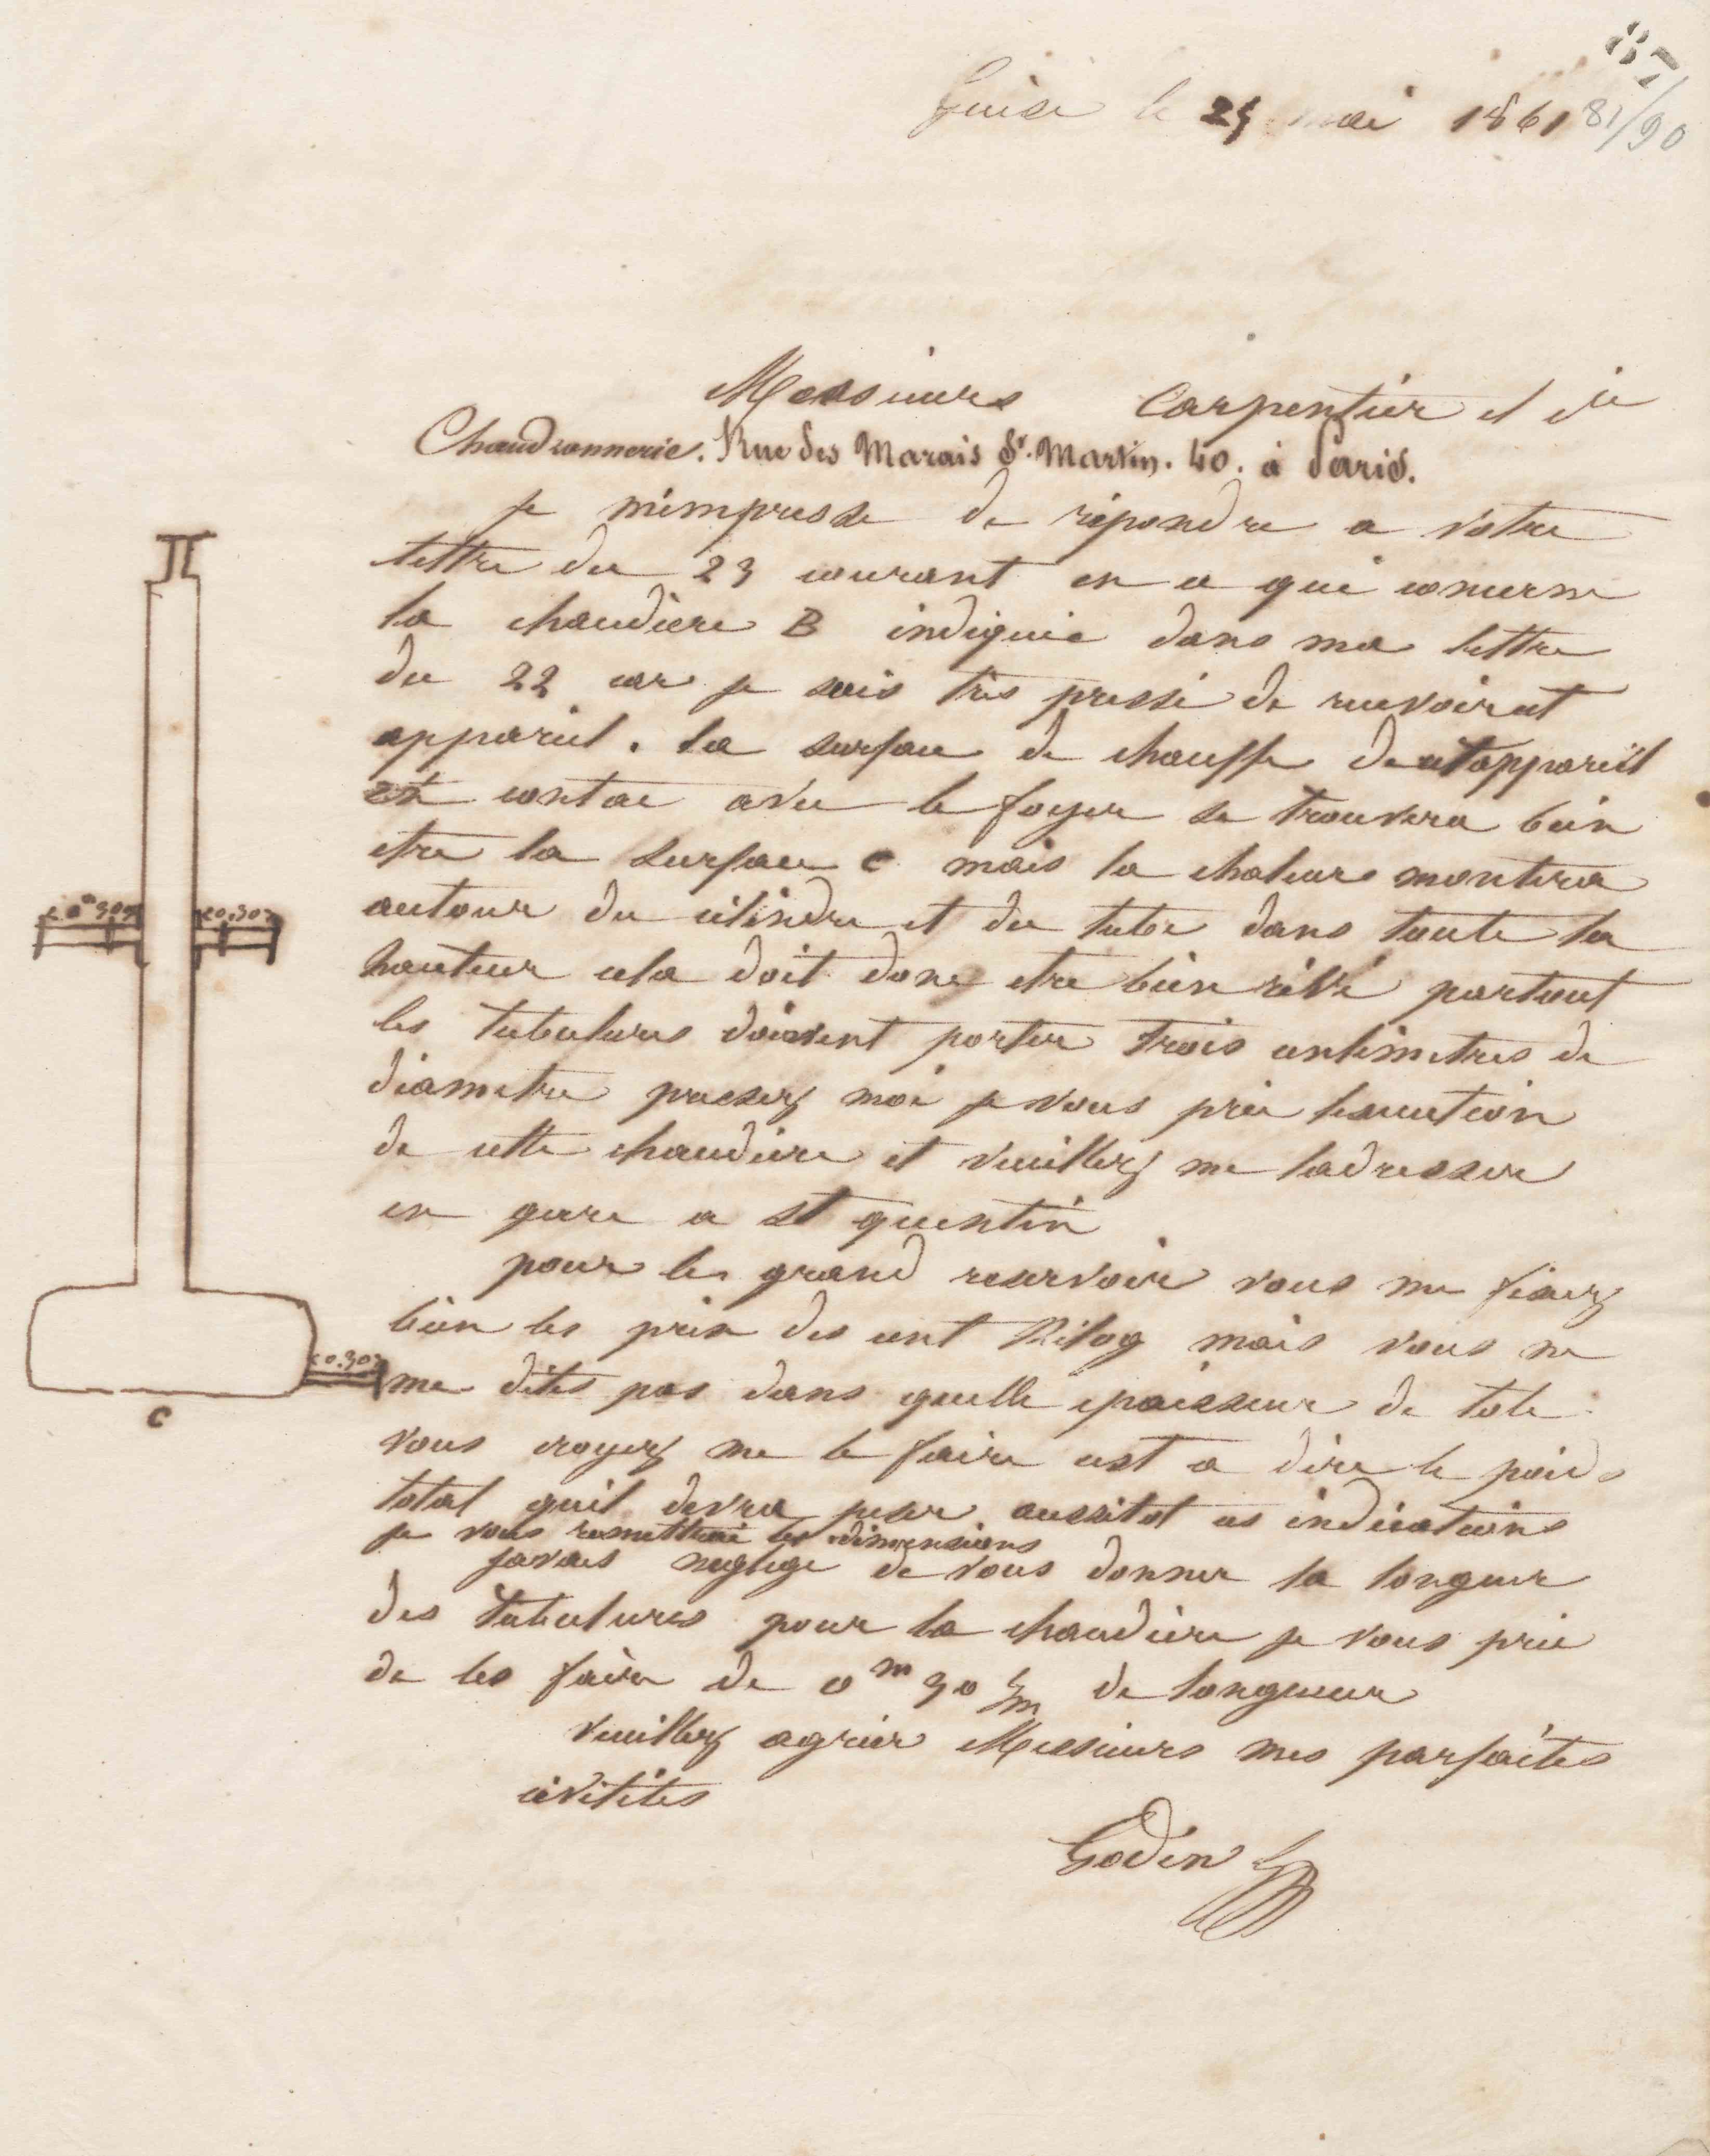 87
Guise le 25 mai 1861 81/90
Messieurs Carpentier et Cie
Chaudronnerie. Rue des Marais St. Martin. 40. à Paris.
je m'empresse de répondre a votre
lettre du 23 courant en ce qui concerne
la chaudière B indiquée dans ma lettre
du 22 car je suis très pressé de recevoir cet
appareil. la surface de chauffe de cet appareil
en contac avec le foyer se trouvera bien
etre la surface C mais la chaleur montera
autour du cilindre et du tube dans toute la
hauteur cela doit donc etre bien rivé partout
les tubulures doivent porter trois centimetres de
diametre pressez moi je vous prie lexecution
de cette chaudiere et veuillez me ladresser
en gare a St quentin
pour le grand reservoir vous me fixez
bien les prix des cent Kilog mais vous ne
me dites pas dans quelle epaisseur de tole
vous croyez me le faire cest a dire le poids
total quil devra peser aussitot ces indications
je vous remettrai les dimensions
javais neglige de vous donner la longueur
des tubulures pour la chaudiere je vous prie
de les faire de 0m 30 c/m de longueur
veuillez agréer Messieurs mes parfaites
civilites
Godin
0m30
0.30
0.30
C